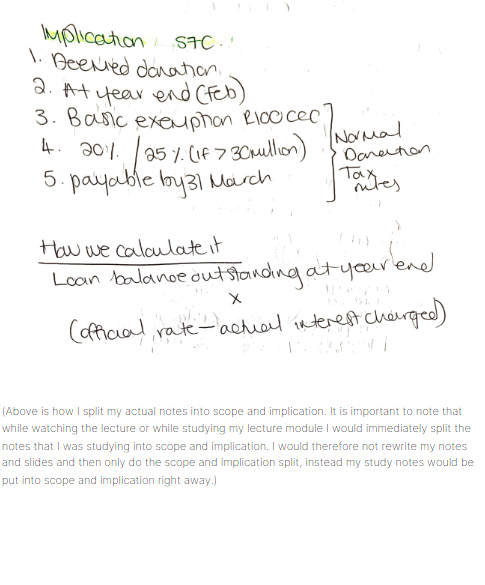 Implication S7C.
1. Deemed donation
2. At year end (Feb)
3. Basic exemption R100 000
4. 20% / 25% (if > 30 million)
5. payable by 31 March
Normal
Donation
Tax
rules
How we calculate it
Loan balance outstanding at year end
x
(official rate - actual interest charged)
(Above is how I split my actual notes into scope and implication. It is important to note that
while watching the lecture or while studying my lecture module I would immediately split the
notes that I was studying into scope and implication. I would therefore not rewrite my notes
and slides and then only do the scope and implication split, instead my study notes would be
put into scope and implication right away.)